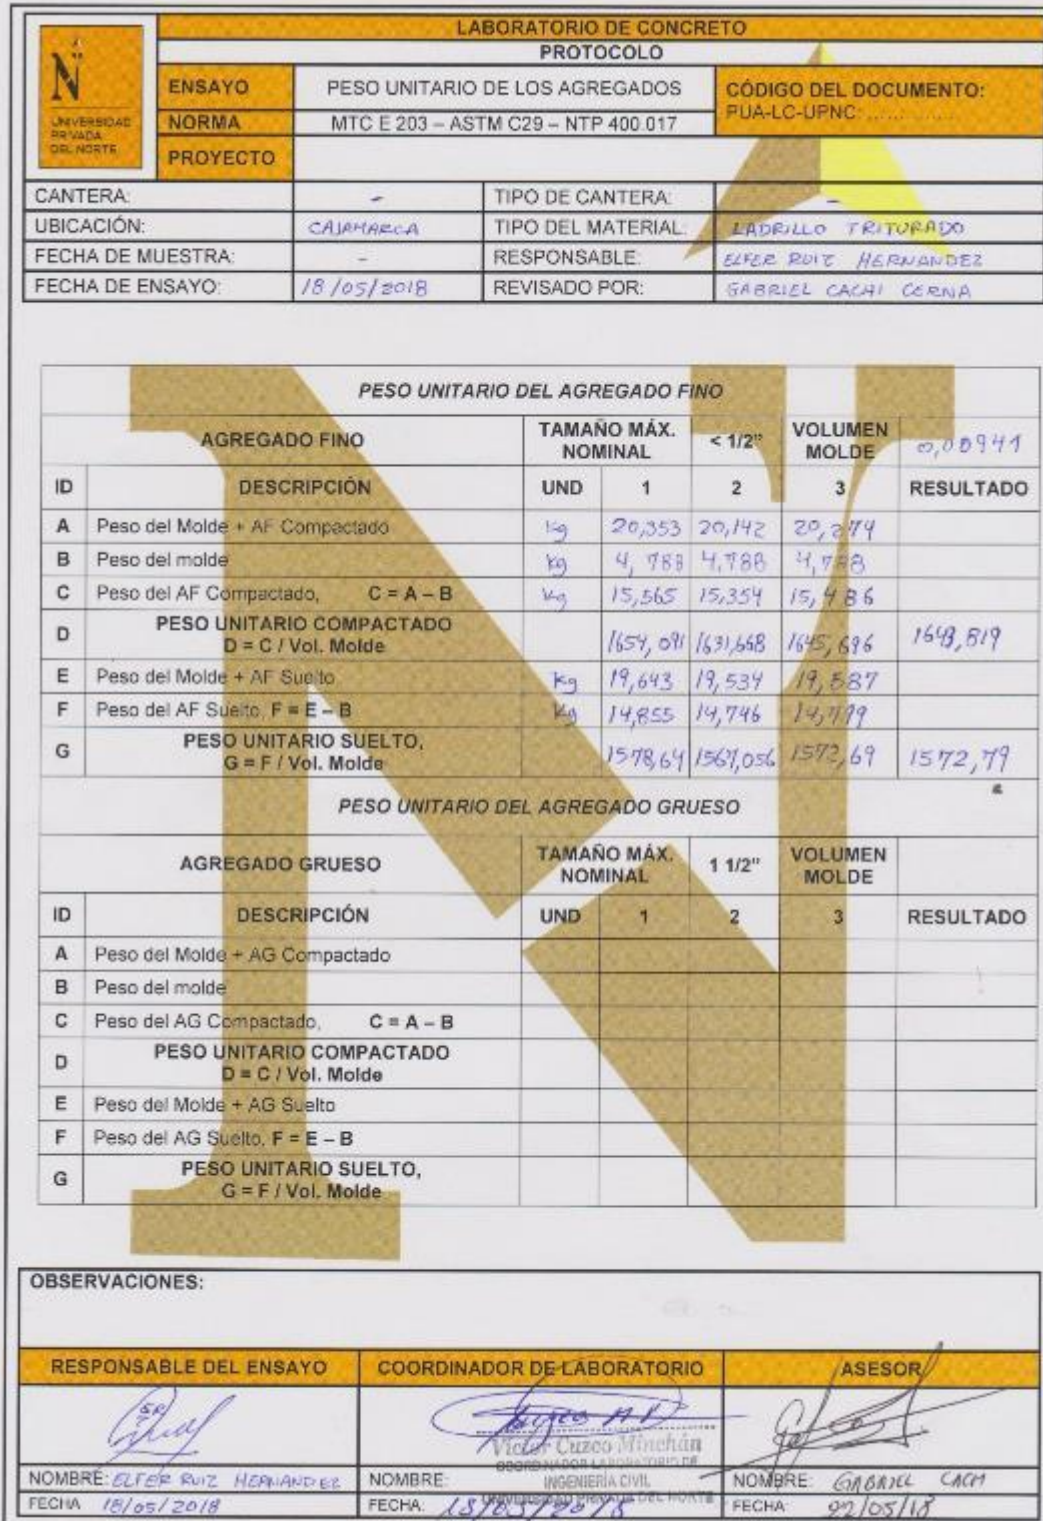 LABORATORIO DE CONCRETO
PROTOCOLO
N
UNIVERSIDAD
PRIVADA
DEL NORTE
ENSAYO PESO UNITARIO DE LOS AGREGADOS CÓDIGO DEL DOCUMENTO:
NORMA MTC E 203 – ASTM C29 – NTP 400.017 PUA-LC-UPNC: ...............
PROYECTO
CANTERA: - TIPO DE CANTERA: -
UBICACIÓN: CAJAMARCA TIPO DEL MATERIAL: LADRILLO TRITURADO
FECHA DE MUESTRA: - RESPONSABLE: ELFER RUIZ HERNANDEZ
FECHA DE ENSAYO: 18/05/2018 REVISADO POR: GABRIEL CACHI CERNA
PESO UNITARIO DEL AGREGADO FINO
AGREGADO FINO TAMAÑO MÁX. NOMINAL < 1/2" VOLUMEN MOLDE 0,00941
ID DESCRIPCIÓN UND 1 2 3 RESULTADO
A Peso del Molde + AF Compactado Kg 20,353 20,142 20,274
B Peso del molde kg 4,788 4,788 4,788
C Peso del AF Compactado, C = A – B kg 15,565 15,354 15,486
D PESO UNITARIO COMPACTADO
D = C / Vol. Molde 1654,091 1631,668 1645,696 1643,819
E Peso del Molde + AF Suelto Kg 19,643 19,534 19,587
F Peso del AF Suelto, F = E – B Kg 14,855 14,746 14,799
G PESO UNITARIO SUELTO,
G = F / Vol. Molde 1578,64 1567,056 1572,69 1572,79
PESO UNITARIO DEL AGREGADO GRUESO
AGREGADO GRUESO TAMAÑO MÁX. NOMINAL 1 1/2" VOLUMEN MOLDE
ID DESCRIPCIÓN UND 1 2 3 RESULTADO
A Peso del Molde + AG Compactado
B Peso del molde
C Peso del AG Compactado, C = A – B
D PESO UNITARIO COMPACTADO
D = C / Vol. Molde
E Peso del Molde + AG Suelto
F Peso del AG Suelto, F = E – B
G PESO UNITARIO SUELTO,
G = F / Vol. Molde
OBSERVACIONES:
RESPONSABLE DEL ENSAYO COORDINADOR DE LABORATORIO ASESOR
Victor Cuzco Minchán
COORDINADOR LABORATORIO DE
INGENIERÍA CIVIL
UNIVERSIDAD PRIVADA DEL NORTE
NOMBRE: ELFER RUIZ HERNANDEZ NOMBRE: NOMBRE: GABRIEL CACHI
FECHA 18/05/2018 FECHA: 18/05/2018 FECHA 22/05/18